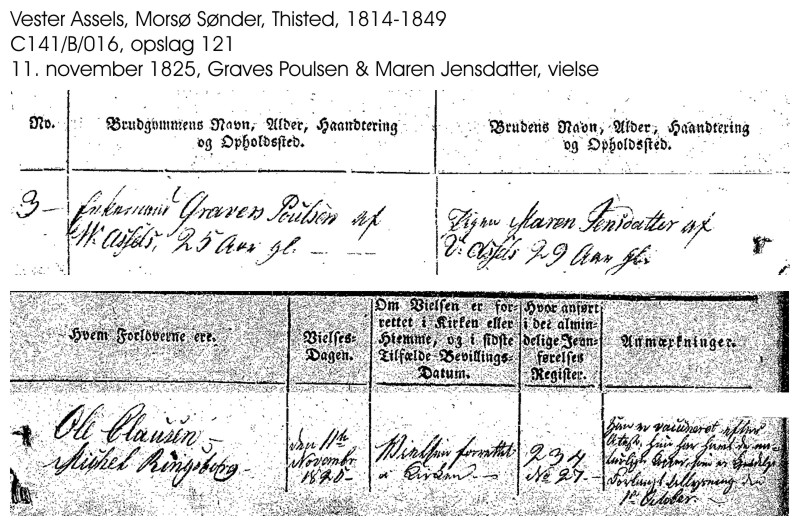 Vester Assels, Morsø Sønder, Thisted, 1814-1849
C141/B/016, opslag 121
11. november 1825, Graves Poulsen & Maren Jensdatter, vielse
No.
Brudgommens Navn, Alder, Haandtering
og Opholdssted.
Brudens Navn, Alder, Haandtering
og Opholdssted.
3
Enkemand Gravers Poulsen af
W. Assels, 25 Aar gl.
Pigen Maren Jensdatter af
V. Assels 29 Aar gl.
Hvem Forloverne ere.
Vielses-
Dagen.
Om Vielsen er for-
rettet i Kirken eller
Hiemme, og i sidste
Tilfælde Bevillings-
Datum.
Hvor anført
i det almin-
delige Jevn-
førelses
Register.
Anmærkninger.
Ole Clausen
Michel Ringsborg
den 11te
Novembr
1825
Vielsen forrettet
i Kirken
234
No 27
Han er vaccineret efter
Attest. Hun har havt de na-
turlige
1ste October.